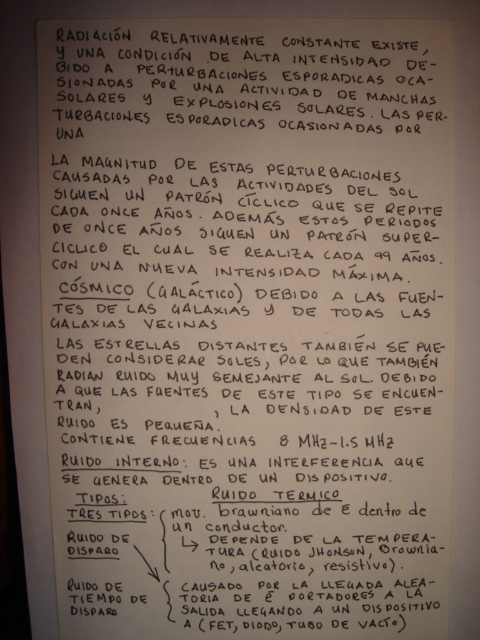 RADIACIÓN RELATIVAMENTE CONSTANTE EXISTE,
Y UNA CONDICIÓN DE ALTA INTENSIDAD DE-
BIDO A PERTURBACIONES ESPORADICAS OCA-
SIONADAS POR UNA ACTIVIDAD DE MANCHAS
SOLARES Y EXPLOSIONES SOLARES. LAS PER-
TURBACIONES ESPORADICAS OCASIONADAS POR
UNA
LA MAGNITUD DE ESTAS PERTURBACIONES
CAUSADAS POR LAS ACTIVIDADES DEL SOL
SIGUEN UN PATRÓN CÍCLICO QUE SE REPITE
CADA ONCE AÑOS. ADEMÁS ESTOS PERIODOS
DE ONCE AÑOS SIGUEN UN PATRÓN SUPER-
CICLICO EL CUAL SE REALIZA CADA 99 AÑOS.
CON UNA NUEVA INTENSIDAD MÁXIMA.
CÓSMICO (GALÁCTICO) DEBIDO A LAS FUEN-
TES DE LAS GALAXIAS Y DE TODAS LAS
GALAXIAS VECINAS
LAS ESTRELLAS DISTANTES TAMBIÉN SE PUE-
DEN CONSIDERAR SOLES, POR LO QUE TAMBIÉN
RADIAN RUIDO MUY SEMEJANTE AL SOL. DEBIDO
A QUE LAS FUENTES DE ESTE TIPO SE ENCUEN-
TRAN, , LA DENSIDAD DE ESTE
RUIDO ES PEQUEÑA.
CONTIENE FRECUENCIAS 8 MHZ-1.5 MHZ
RUIDO INTERNO: ES UNA INTERFERENCIA QUE
SE GENERA DENTRO DE UN DISPOSITIVO.
TIPOS: RUIDO TERMICO
TRES TIPOS: mov. brawniano de ē dentro de
un conductor.
RUIDO DE DISPARO
↳ DEPENDE DE LA TEMPERA-
TURA (RUIDO JHONSON, Brownia-
no, aleatorio, resistivo).
RUIDO DE TIEMPO DE DISPARO
CAUSADO POR LA LLEGADA ALEA-
TORIA DE ē PORTADORES A LA
SALIDA LLEGANDO A UN DISPOSITIVO
A (FET, DIODO, TUBO DE VACÍO)